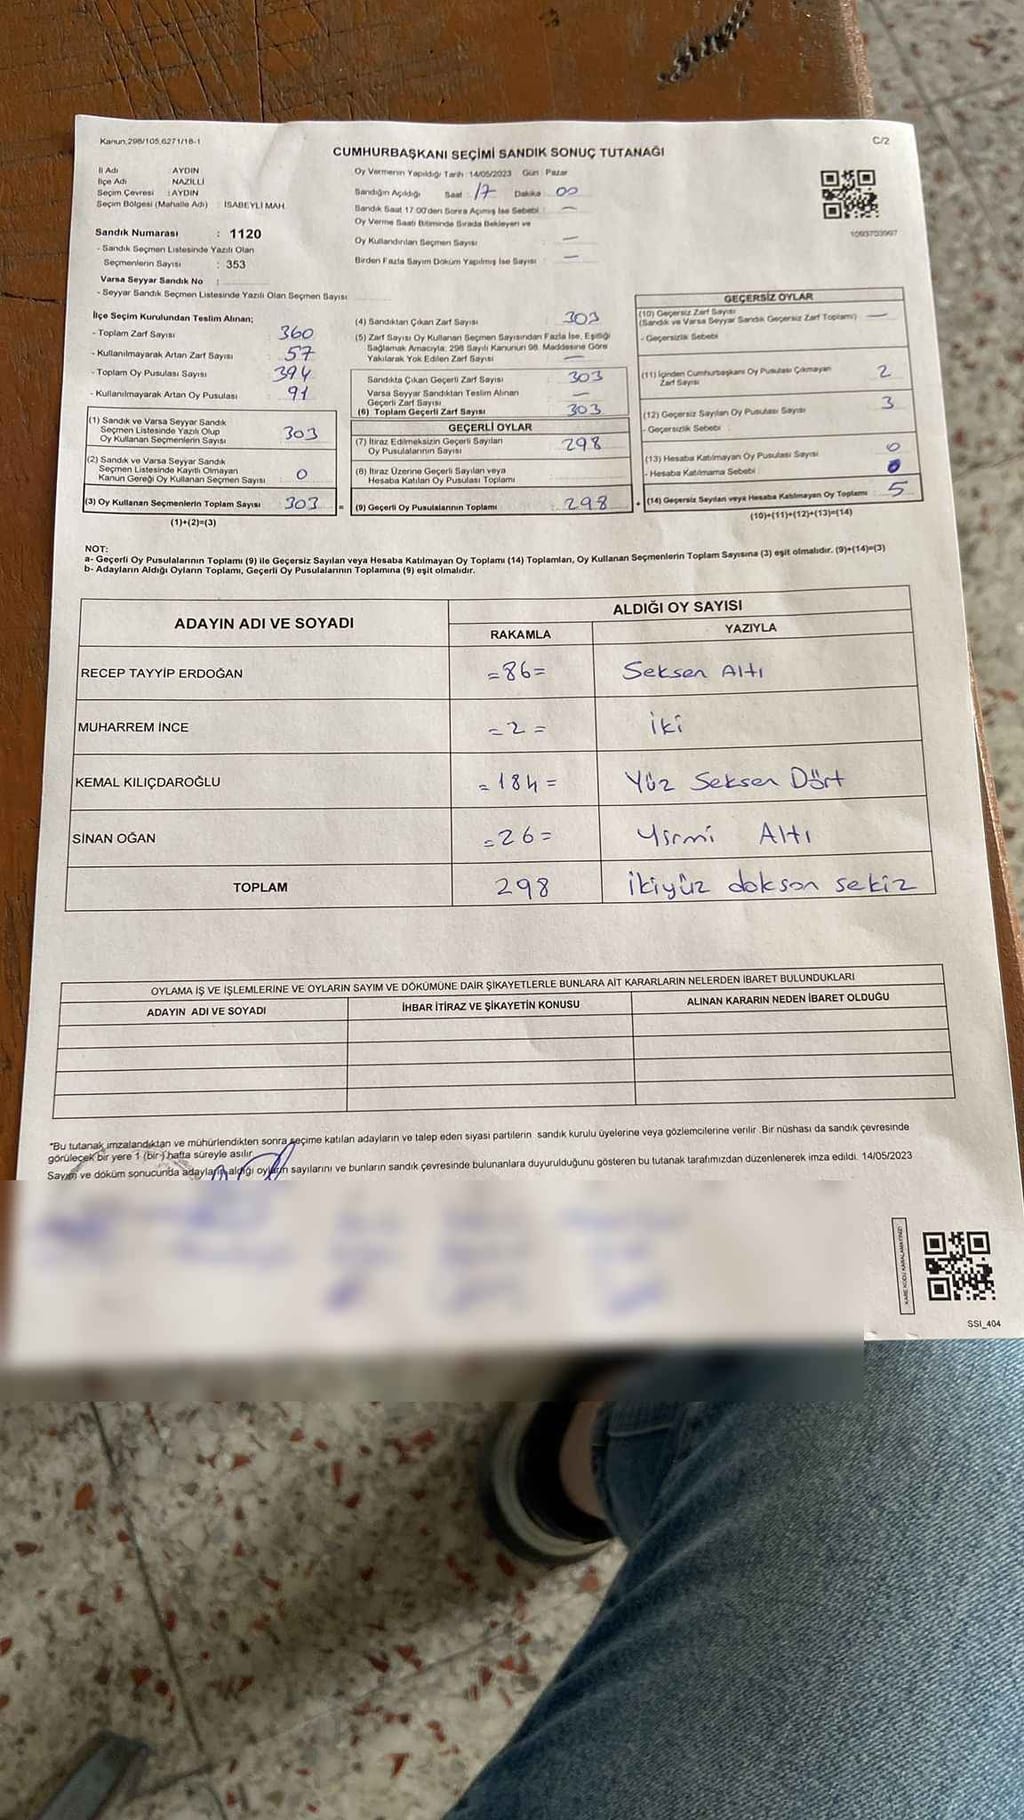 Kanun.298/105,6271/18-1
C/2
CUMHURBAŞKANI SEÇİMİ SANDIK SONUÇ TUTANAĞI
İl Adı AYDIN
İlçe Adı NAZİLLİ
Seçim Çevresi : AYDIN
Seçim Bölgesi (Mahalle Adı) : İSABEYLİ MAH.
Sandık Numarası : 1120
- Sandık Seçmen Listesinde Yazılı Olan
Seçmenlerin Sayısı : 353
Varsa Seyyar Sandık No :
- Seyyar Sandık Seçmen Listesinde Yazılı Olan Seçmen Sayısı
Oy Vermenin Yapıldığı Tarih :14/05/2023 Gün : Pazar
Sandığın Açıldığı Saat : 17 Dakika : 00
Sandık Saat 17:00'den Sonra Açılmış İse Sebebi : —
Oy Verme Saati Bitiminde Sırada Bekleyen ve
Oy Kullandırılan Seçmen Sayısı : —
Birden Fazla Sayım Döküm Yapılmış İse Sayısı : —
İlçe Seçim Kurulundan Teslim Alınan;
- Toplam Zarf Sayısı 360
- Kullanılmayarak Artan Zarf Sayısı 57
- Toplam Oy Pusulası Sayısı 394
- Kullanılmayarak Artan Oy Pusulası 91
(1) Sandık ve Varsa Seyyar Sandık
Seçmen Listesinde Yazılı Olup
Oy Kullanan Seçmenlerin Sayısı 303
(2) Sandık ve Varsa Seyyar Sandık
Seçmen Listesinde Kayıtlı Olmayan
Kanun Gereği Oy Kullanan Seçmen Sayısı 0
(3) Oy Kullanan Seçmenlerin Toplam Sayısı 303
(1)+(2)=(3)
(4) Sandıktan Çıkan Zarf Sayısı 303
(5) Zarf Sayısı Oy Kullanan Seçmen Sayısından Fazla İse, Eşitliği
Sağlamak Amacıyla; 298 Sayılı Kanunun 98. Maddesine Göre
Yakılarak Yok Edilen Zarf Sayısı —
Sandıkta Çıkan Geçerli Zarf Sayısı 303
Varsa Seyyar Sandıktan Teslim Alınan
Geçerli Zarf Sayısı —
(6) Toplam Geçerli Zarf Sayısı 303
GEÇERLİ OYLAR
(7) İtiraz Edilmeksizin Geçerli Sayılan
Oy Pusulalarının Sayısı 298
(8) İtiraz Üzerine Geçerli Sayılan veya
Hesaba Katılan Oy Pusulası Toplamı
= (9) Geçerli Oy Pusulalarının Toplamı 298
GEÇERSİZ OYLAR
(10) Geçersiz Zarf Sayısı
(Sandık ve Varsa Seyyar Sandık Geçersiz Zarf Toplamı) —
- Geçersizlik Sebebi
(11) İçinden Cumhurbaşkanı Oy Pusulası Çıkmayan
Zarf Sayısı 2
(12) Geçersiz Sayılan Oy Pusulası Sayısı 3
- Geçersizlik Sebebi
(13) Hesaba Katılmayan Oy Pusulası Sayısı 0
- Hesaba Katılmama Sebebi 0
+ (14) Geçersiz Sayılan veya Hesaba Katılmayan Oy Toplamı 5
(10)+(11)+(12)+(13)=(14)
NOT:
a- Geçerli Oy Pusulalarının Toplamı (9) ile Geçersiz Sayılan veya Hesaba Katılmayan Oy Toplamı (14) Toplamları, Oy Kullanan Seçmenlerin Toplam Sayısına (3) eşit olmalıdır. (9)+(14)=(3)
b- Adayların Aldığı Oyların Toplamı, Geçerli Oy Pusulalarının Toplamına (9) eşit olmalıdır.
ADAYIN ADI VE SOYADI ALDIĞI OY SAYISI
RAKAMLA YAZIYLA
RECEP TAYYİP ERDOĞAN =86= Seksen Altı
MUHARREM İNCE =2= İki
KEMAL KILIÇDAROĞLU =184= Yüz Seksen Dört
SİNAN OĞAN =26= Yirmi Altı
TOPLAM 298 İkiyüz doksan sekiz
OYLAMA İŞ VE İŞLEMLERİNE VE OYLARIN SAYIM VE DÖKÜMÜNE DAİR ŞİKAYETLERLE BUNLARA AİT KARARLARIN NELERDEN İBARET BULUNDUKLARI
ADAYIN ADI VE SOYADI İHBAR İTİRAZ VE ŞİKAYETİN KONUSU ALINAN KARARIN NEDEN İBARET OLDUĞU
*Bu tutanak imzalandıktan ve mühürlendikten sonra seçime katılan adayların ve talep eden siyasi partilerin sandık kurulu üyelerine veya gözlemcilerine verilir. Bir nüshası da sandık çevresinde
görülecek bir yere 1 (bir) hafta süreyle asılır.
Sayım ve döküm sonucunda adayların aldığı oyların sayılarını ve bunların sandık çevresinde bulunanlara duyurulduğunu gösteren bu tutanak tarafımızdan düzenlenerek imza edildi. 14/05/2023
SSI_404